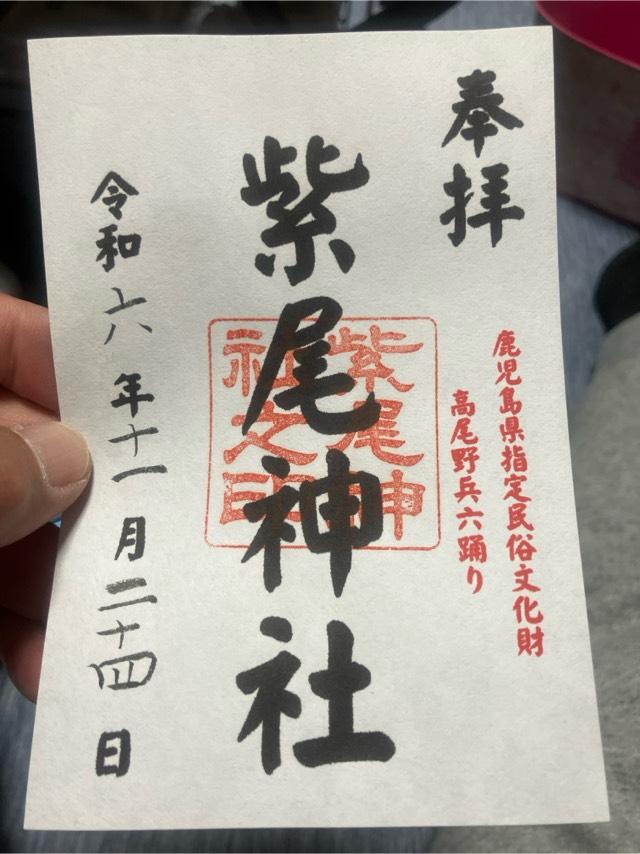 奉拝
鹿児島県指定民俗文化財
高尾野兵六踊り
紫尾神社
紫尾神
社之印
令和六年十一月二十四日